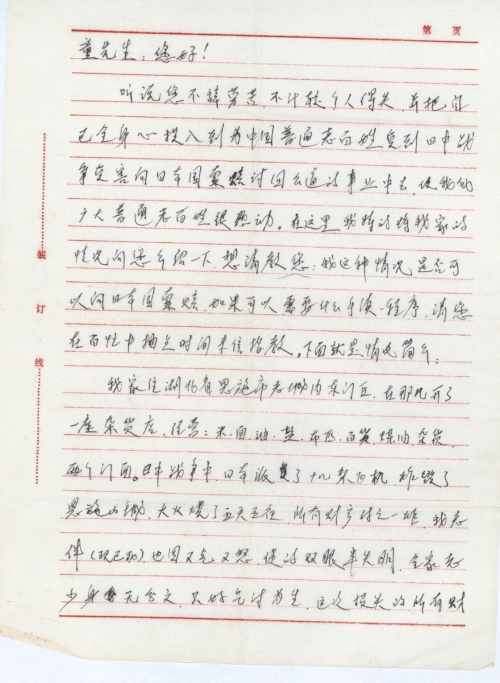 第 页
童先生：您好！
听说您不辞劳苦，不计较个人得失，并把自
己全身心投入到为中国普通老百姓受到日中战
争受害向日本国索赔讨回公道的事业中去，使我们
广大普通老百姓很感动。在这里我将我家的
情况向您介绍一下，想请教您：我这种情况是否可
以向日本国索赔，如果可以需要什么手续、程序，请您
在百忙中抽点时间来信指教。下面就是情况简介：
我家住湖北省恩施市老城内东门区，在那儿开了
一座杂货店，经营：米、面、油、盐、布匹、百货、煤油、杂货，
两个门面。日中战争中，日本派了十几架飞机，炸毁了
恩施山城，大火烧了五天五夜，所有财产付之一炬，我老
伴（现已故）也因又气又怒，使的双眼半失明，全家老
少身无分文，只好乞讨为生，这次损失的所有财
装
订
线